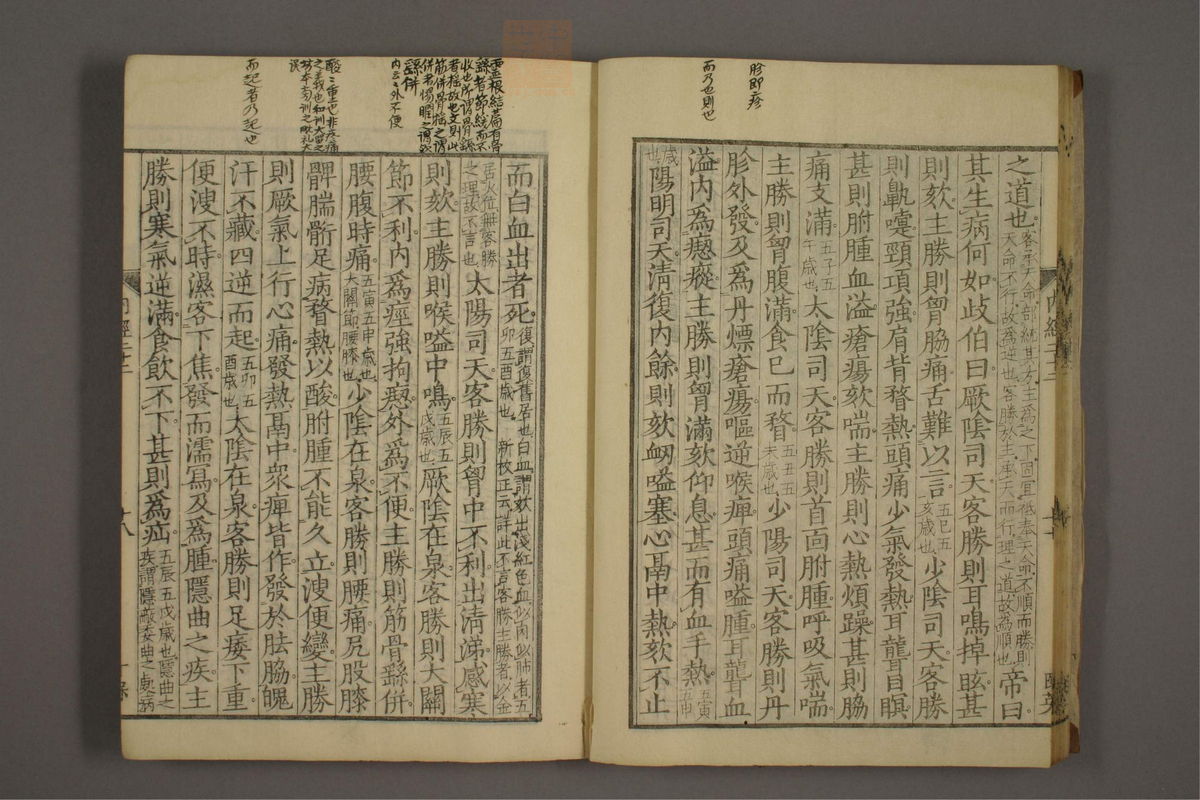 胗即疹
而乃也則也
之道也客承天命部統其方主爲之下固宜祗奉天命不順而勝則天命不行故爲逆也客勝於主承天而行理之道故爲順也帝曰
其生病何如歧伯曰厥陰司天客勝則耳鳴掉眩甚
則欬主勝則胷脇痛舌難以言五巳五亥歲也少陰司天客勝
則鼽嚏頸項強肩背瞀熱頭痛少氣發熱耳聾目瞑
甚則胕腫血溢瘡瘍欬喘主勝則心熱煩躁甚則脇
痛支滿五子五午歲也太陰司天客勝則首面胕腫呼吸氣喘
主勝則胷腹滿食已而瞀五丑五未歲也少陽司天客勝則丹
胗外發及爲丹熛瘡瘍嘔逆喉痺頭痛嗌腫耳聾血
溢內爲瘛瘲主勝則胷滿欬仰息甚而有血手熱五寅五申
歲也陽明司天清復內餘則欬衂嗌塞心鬲中熱欬不止
內經二十二
而白血出者死復謂復舊居也白血謂欬出淺紅色血似肉似肺者五卯五酉歲也 新校正云詳此不言客勝主勝者以金
居火位無客勝之理故不言也太陽司天客勝則胷中不利出清涕感寒
則欬主勝則喉嗌中鳴五辰五戌歲也厥陰在泉客勝則大關
節不利內爲痙強拘瘛外爲不便主勝則筋骨繇併
腰腹時痛五寅五申歲也大關節腰膝也少陰在泉客勝則腰痛尻股膝
髀腨䯒足病瞀熱以酸胕腫不能久立溲便變主勝
則厥氣上行心痛發熱鬲中衆痺皆作發於胠脇魄
汗不藏四逆而起五卯五酉歲也太陰在泉客勝則足痿下重
便溲不時濕客下焦發而濡寫及爲腫隱曲之疾主
勝則寒氣逆滿食飲不下甚則爲疝五辰五戌歲也隱曲之疾謂隱蔽委曲之處病
繇併
內云云外不便
而起者乃起也